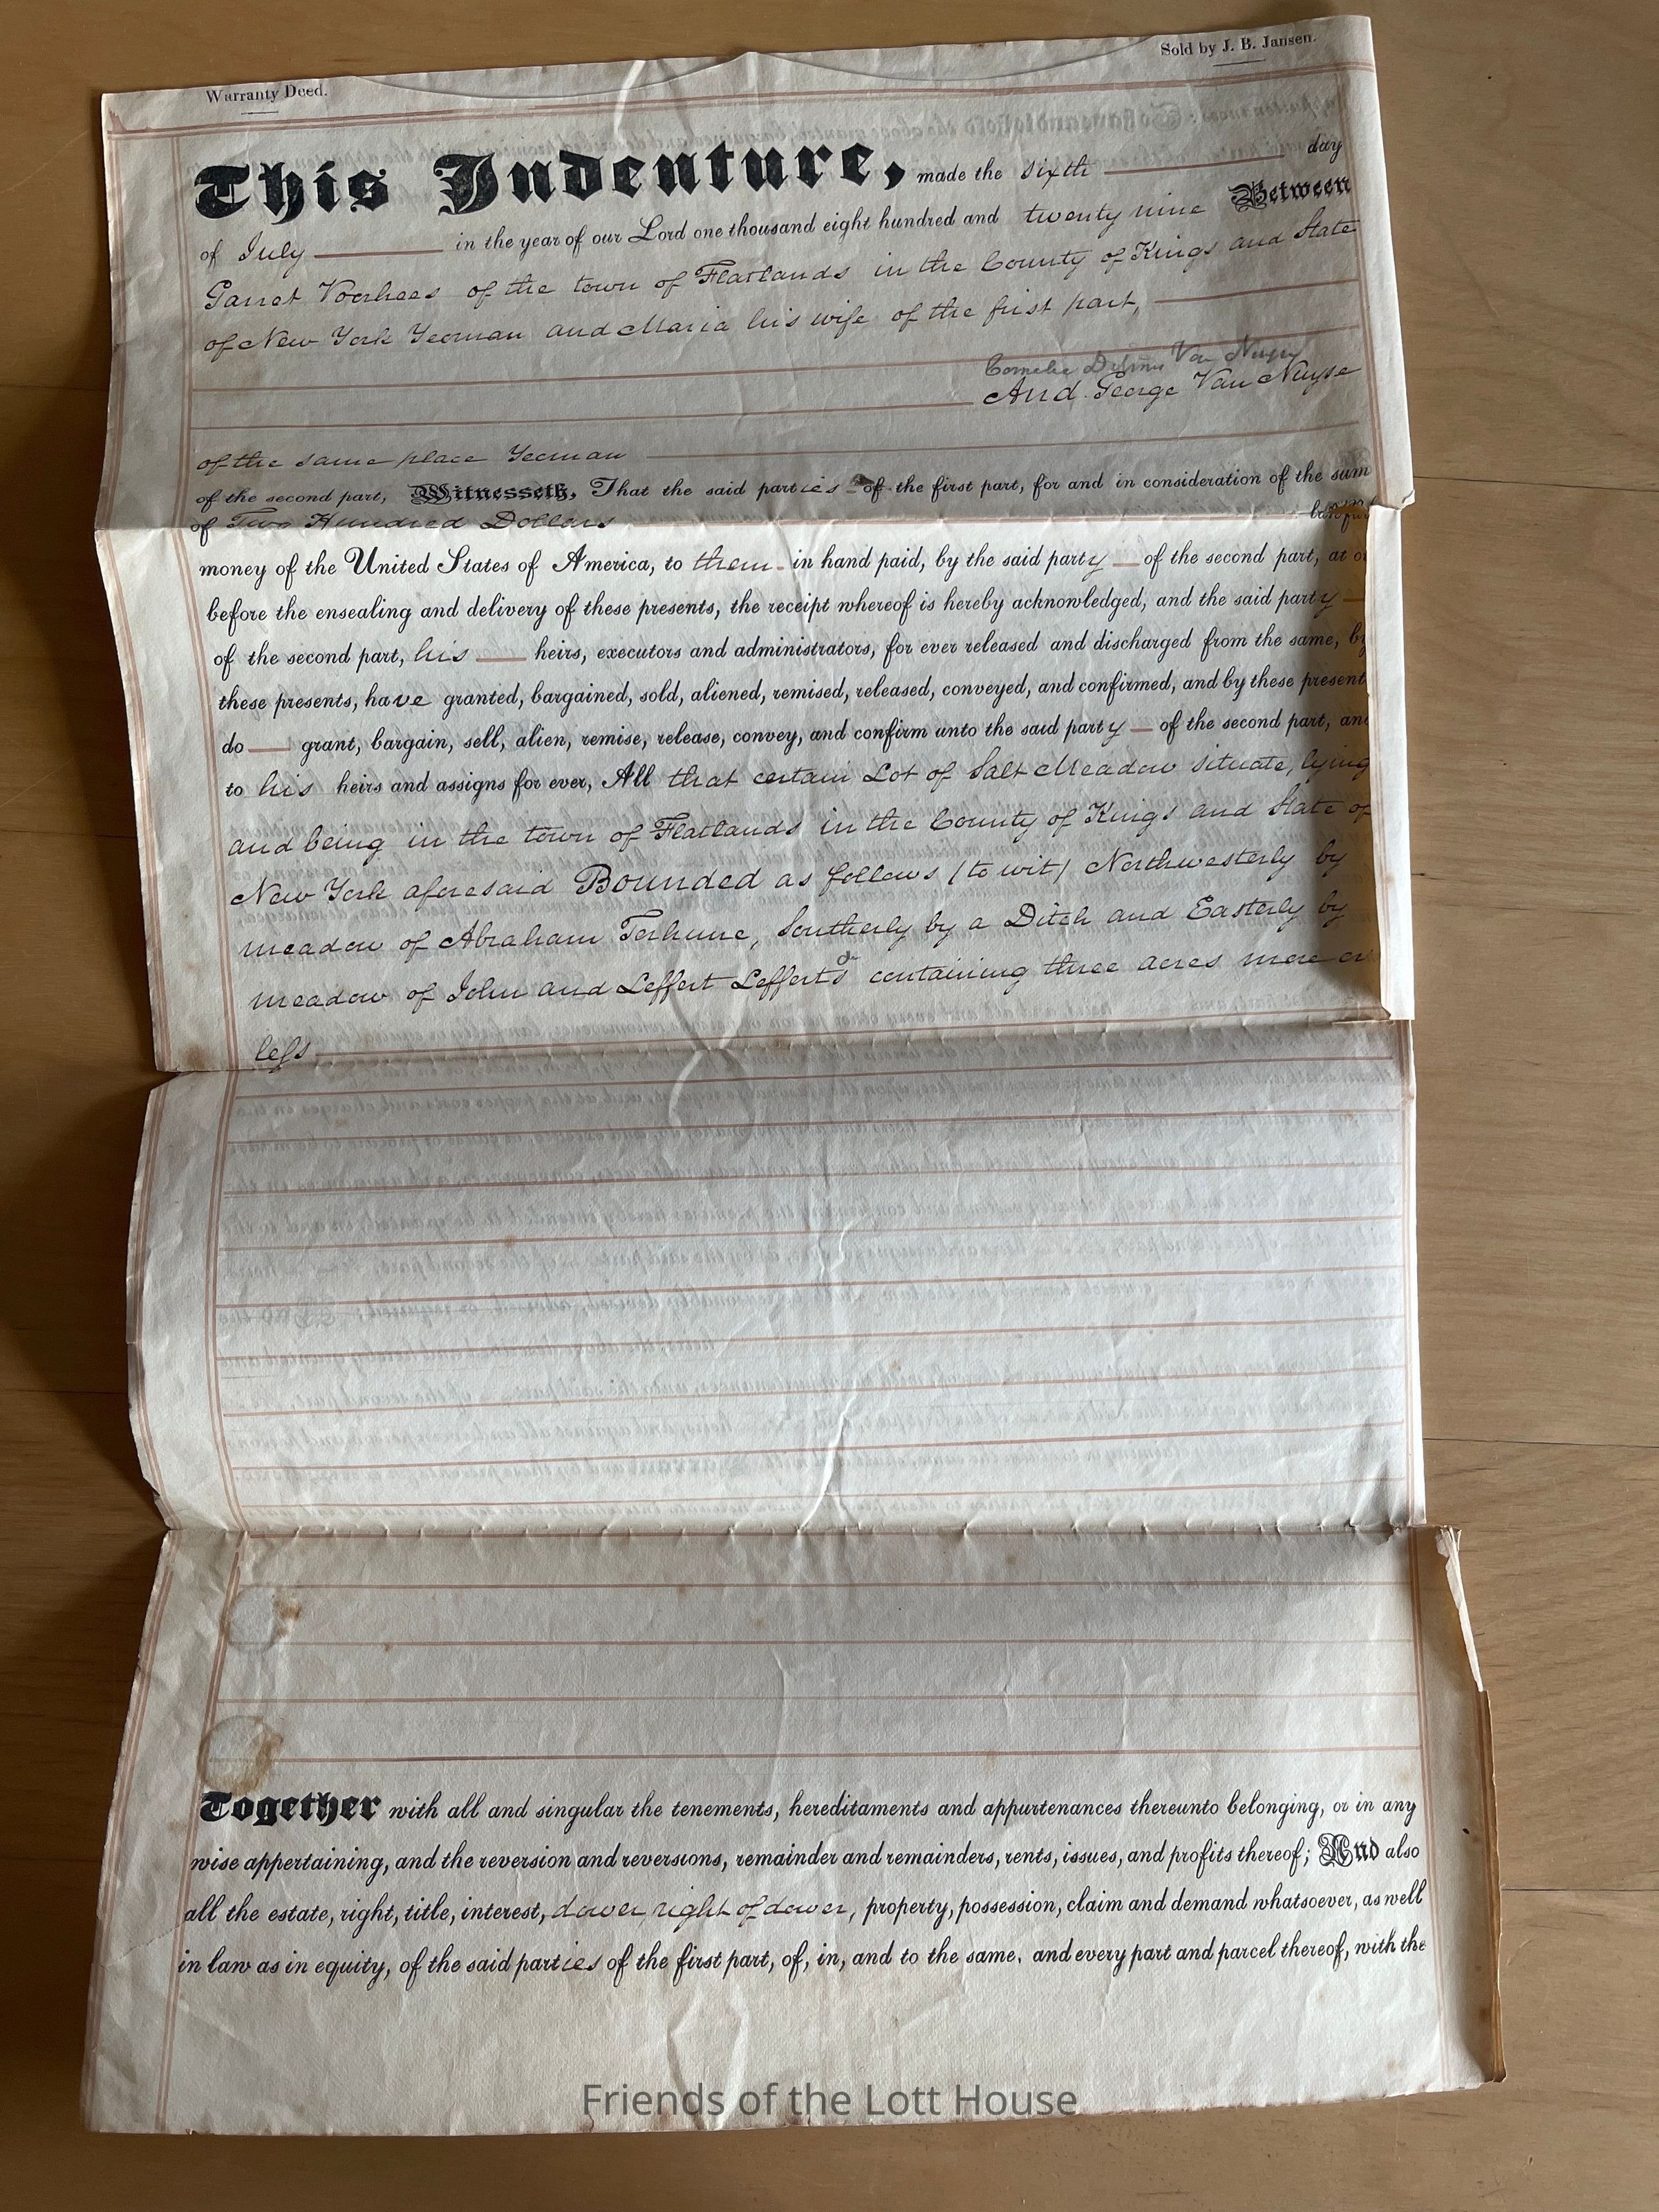 Warranty Deed.
Sold by J. B. Jansen.
This Indenture, made the sixth day
of July in the year of our Lord one thousand eight hundred and twenty nine Between
Garret Voorhees of the town of Flatlands in the County of Kings and State
of New York Yeoman and Maria his wife of the first part,
Cornelia Van Nuyse
And George Van Nuyse
of the same place Yeoman
of the second part, Witnesseth, That the said parties of the first part, for and in consideration of the sum
of Two Hundred Dollars
money of the United States of America, to them in hand paid, by the said party of the second part, at or
before the ensealing and delivery of these presents, the receipt whereof is hereby acknowledged, and the said party
of the second part, his heirs, executors and administrators, for ever released and discharged from the same, by
these presents, have granted, bargained, sold, aliened, remised, released, conveyed, and confirmed, and by these present
do grant, bargain, sell, alien, remise, release, convey, and confirm unto the said party of the second part, and
to his heirs and assigns for ever, All that certain Lot of Salt Meadow situate, lying
and being in the town of Flatlands in the County of Kings and State of
New York aforesaid Bounded as follows (to wit) Northwesterly by
meadow of Abraham Terhune, Southerly by a Ditch and Easterly by
meadow of John and Leffert Lefferts containing three acres more or
less
Together with all and singular the tenements, hereditaments and appurtenances thereunto belonging, or in any
wise appertaining, and the reversion and reversions, remainder and remainders, rents, issues, and profits thereof; And also
all the estate, right, title, interest, dower right of dower, property, possession, claim and demand whatsoever, as well
in law as in equity, of the said parties of the first part, of, in, and to the same, and every part and parcel thereof, with the
Friends of the Lott House